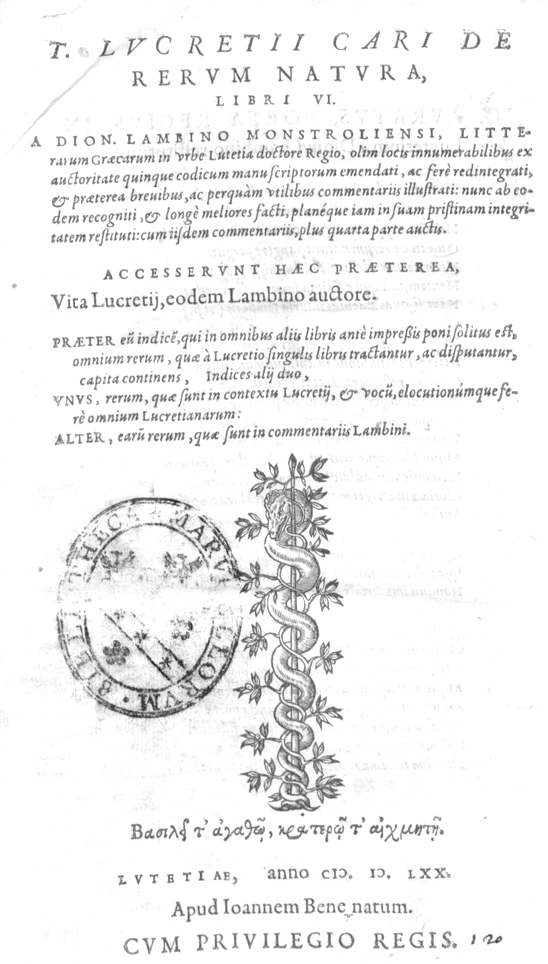 T. LVCRETII CARI DE
RERVM NATVRA,
LIBRI VI.
A DION. LAMBINO MONSTROLIENSI, LITTE-
rarum Græcarum in vrbe Lutetia doctore Regio, olim locis innumerabilibus ex
auctoritate quinque codicum manuscriptorum emendati, ac ferè redintegrati,
& præterea breuibus, ac perquàm vtilibus commentariis illustrati: nunc ab eo-
dem recogniti, & longè meliores facti, planéque iam in suam pristinam integri-
tatem restituti: cum iisdem commentariis, plus quarta parte auctis.
ACCESSERVNT HÆC PRÆTEREA,
Vita Lucretij, eodem Lambino auctore.
PRÆTER eũ indicẽ, qui in omnibus aliis libris antè impreßis poni solitus est,
omnium rerum, quæ à Lucretio singulis libris tractantur, ac disputantur,
capita continens, Indices alij duo,
VNVS, rerum, quæ sunt in contextu Lucretij, & vocũ, elocutionúmque fe-
rè omnium Lucretianarum:
ALTER, earũ rerum, quæ sunt in commentariis Lambini.
BIBLIOTHECA MARVCELLORVM
Βασιλεῖ τ' ἀγαθῷ, κρατερῷ τ' αἰχμητῇ.
LVTETIAE, anno CIↃ. IↃ. LXX.
Apud Ioannem Bene natum.
CVM PRIVILEGIO REGIS. 120